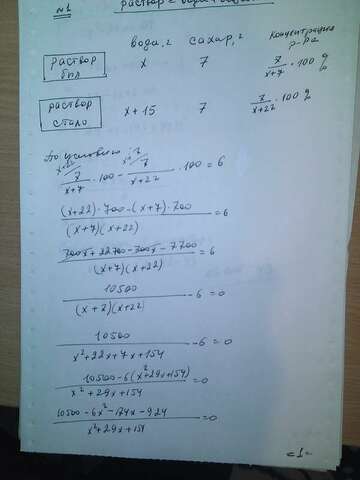 №1
раствор = вода + сахар
вода, г сахар, г концентрация р-ра
раствор был x 7 7/(x+7) · 100 %
раствор стало x+15 7 7/(x+22) · 100 %
По условию:
7/(x+7) · 100 - 7/(x+22) · 100 = 6
((x+22)·700-(x+7)·700)/((x+7)(x+22)) = 6
(700x+22·700-700x-7·700)/((x+7)(x+22)) = 6
10500/((x+7)(x+22)) - 6 = 0
10500/(x²+22x+7x+154) - 6 = 0
(10500-6(x²+29x+154))/(x²+29x+154) = 0
(10500-6x²-174x-924)/(x²+29x+154) = 0
-1-